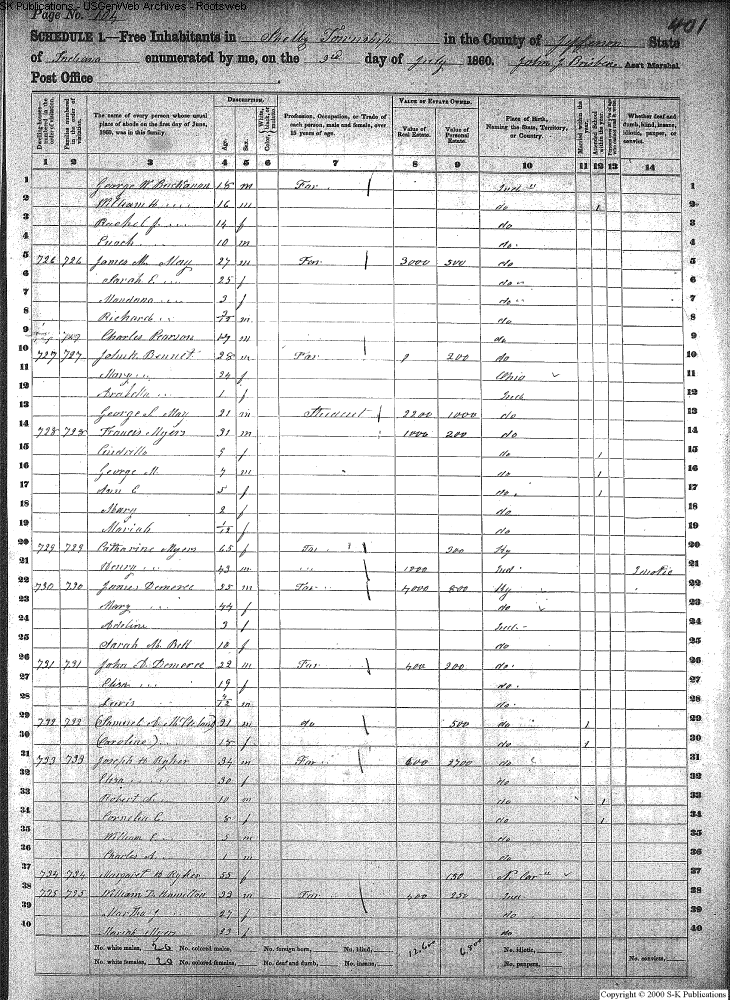 SK Publications - USGenWeb Archives - Rootsweb
Page No. 104
401
SCHEDULE 1.—Free Inhabitants in Shelby Township in the County of Jefferson State
of Indiana enumerated by me, on the 3rd day of July 1860. John J Brisben Ass't Marshal.
Post Office
Dwelling-houses numbered in the order of visitation.
Families numbered in the order of visitation.
The name of every person whose usual place of abode on the first day of June, 1860, was in this family.
DESCRIPTION.
Age.
Sex.
Color, White, black, or mulatto.
Profession, Occupation, or Trade of each person, male and female, over 15 years of age.
VALUE OF ESTATE OWNED.
Value of Real Estate.
Value of Personal Estate.
Place of Birth, Naming the State, Territory, or Country.
Married within the year.
Attended School within the year.
Whether deaf and dumb, blind, insane, idiotic, pauper, or convict.
1 2 3 4 5 6 7 8 9 10 11 12 13 14
1 George W. Buckanon 18 m Far Ind " 1
2 William H. " 16 m do 1 2
3 Rachel J. " 14 f do 3
4 Enoch " 10 m do 4
5 726 726 James M. May 27 m Far 3000 300 do 5
6 Sarah E. " 25 f do " 6
7 " 3 f do " 7
8 Richard " m do 8
9 Charles Pearson 17 m do 9
10 727 727 John H. Bennet 28 m Far 200 do 10
11 Mary " 24 f Ohio 11
12 Arabella " 1 f Ind 12
13 George S. May 21 m Student 2200 1000 do 13
14 728 728 Francis Myers 31 m 1000 200 do 14
15 9 f do 1 15
16 George M. 7 m do 1 16
17 Ann E 5 f do 1 17
18 Mary 2 f do 18
19 Mariah 1/12 f do 19
20 729 729 Catharine Myers 65 f Far 200 Ky 20
21 Henry " 43 m " Ind Idiotic 21
22 730 730 James Demerce m Far 4000 800 Ky 22
23 Mary " 44 f do 23
24 Adeline " 3 f Ind 24
25 Sarah M. Bell 10 f do 25
26 731 731 John A. Demerce 22 m Far 400 200 do 26
27 Eliza " 19 f do 27
28 Lewis " m do 28
29 732 732 (Samuel A. 21 m do 500 do 1 29
30 Caroline) " f do 1 30
31 733 733 Joseph H Ryker 34 m Far 600 2700 do 31
32 Eliza " 30 f do 32
33 Robert " 10 m do 1 33
34 Cornelia E. 8 f do 1 34
35 William 3 m do 35
36 Charles A. 1 m do 36
37 734 734 Margaret B Ryker 55 f 150 N. Car " 37
38 735 735 William D. Hamilton 33 m Far 400 250 Ind 38
39 Martha J. 27 f do 39
40 Mariah Myers 23 f do 40
No. white males, 20 No. colored males, No. foreign born, No. blind, 12,600 6,800 No. idiotic,
No. white females, 20 No. colored females, No. deaf and dumb, No. insane, No. paupers, No. convicts,
Copyright © 2000 S-K Publications